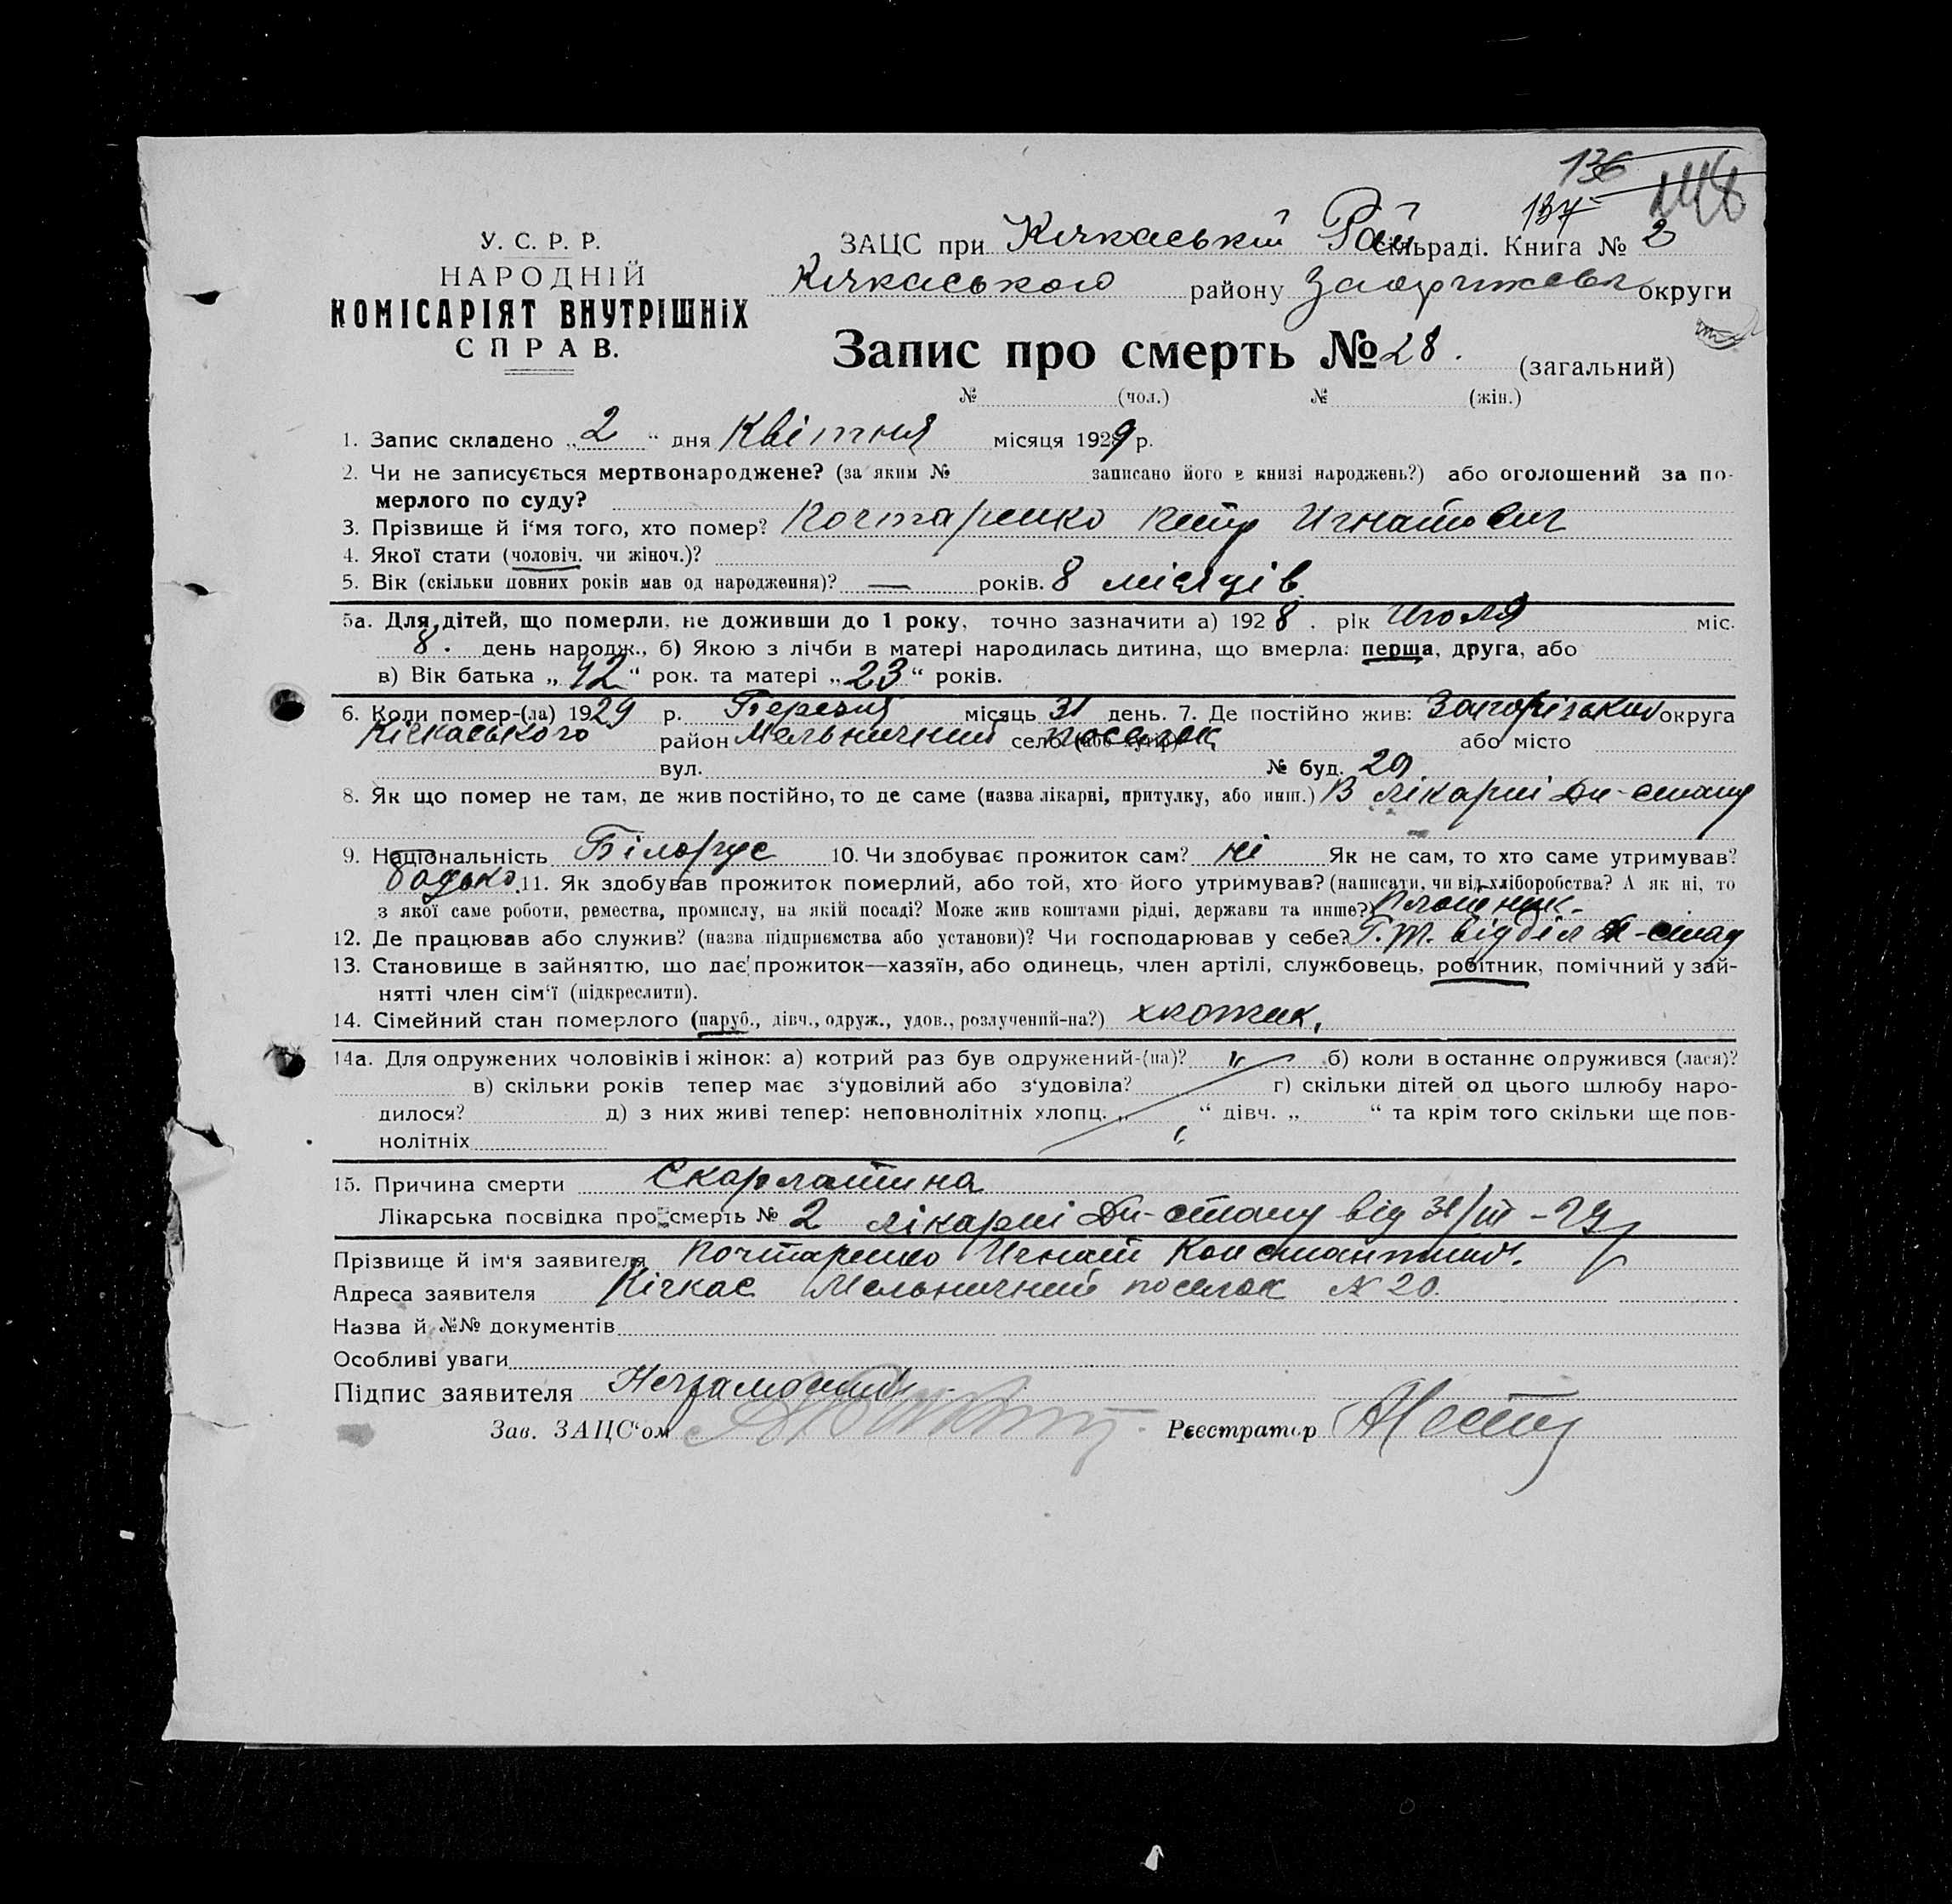 136
137
148
У. С. Р. Р.
НАРОДНІЙ
КОМІСАРІЯТ ВНУТРІШНІХ
СПРАВ.
ЗАЦС при Кічкаській Рай сільраді. Книга № 2
Кічкаського району Запоріжськ округи
Запис про смерть № 28. (загальний)
№ (чол.) № (жін.)
1. Запис складено „2“ дня Квітня місяця 1929 р.
2. Чи не записується мертвонароджене? (за яким № записано його в книзі народжень?) або оголошений за по-
мерлого по суду?
3. Прізвище й ім'я того, хто помер? Почтаренко Петр Игнатович
4. Якої стати (чоловіч. чи жіноч.)?
5. Вік (скільки повних років мав од народження)? — років. 8 місяців.
5а. Для дітей, що померли, не доживши до 1 року, точно зазначити а) 1928. рік Июля міс.
8. день народж., б) Якою з лічби в матері народилась дитина, що вмерла: перша, друга, або
в) Вік батька „42“ рок. та матері „23“ років.
6. Коли помер-(ла) 1929 р. Березня місяць 31 день. 7. Де постійно жив: Запорізький округа
Кічкаського район Мельничний село (або хутір) поселок або місто
вул. № буд. 20
8. Як що помер не там, де жив постійно, то де саме (назва лікарні, притулку, або инш.) В лікарні Дн-стану
9. Національність Білорус 10. Чи здобуває прожиток сам? ні Як не сам, то хто саме утримував?
батько. 11. Як здобував прожиток померлий, або той, хто його утримував? (написати, чи від хліборобства? А як ні, то
з якої саме роботи, ремества, промислу, на якій посаді? Може жив коштами рідні, держави та инше?) Плотник.
12. Де працював або служив? (назва підприємства або установи)? Чи господарював у себе? Г.т. відділ Дн-стад
13. Становище в зайняттю, що дає прожиток—хазяїн, або одинець, член артілі, службовець, робітник, помічний у зай-
нятті член сім'ї (підкреслити).
14. Сімейний стан померлого (паруб., дівч., одруж., удов., розлучений-на?) хлопчик.
14а. Для одружених чоловіків і жінок: а) котрий раз був одружений-(на)? б) коли в останнє одружився (лася)?
в) скільки років тепер має з'удовілий або з'удовіла? г) скільки дітей од цього шлюбу наро-
дилося? д) з них живі тепер: неповнолітніх хлопц. „ “ дівч. „ “ та крім того скільки ще пов-
нолітніх
15. Причина смерти Скарлатина
Лікарська посвідка про смерть № 2 лікарні Дн-стану від 31/III - 29
Прізвище й ім'я заявителя Почтаренко Игнат Константинов.
Адреса заявителя Кічкас Мельничний поселок № 20.
Назва й №№ документів
Особливі уваги
Підпис заявителя Неграмотний
Зав. ЗАЦС'ом Реєстратор